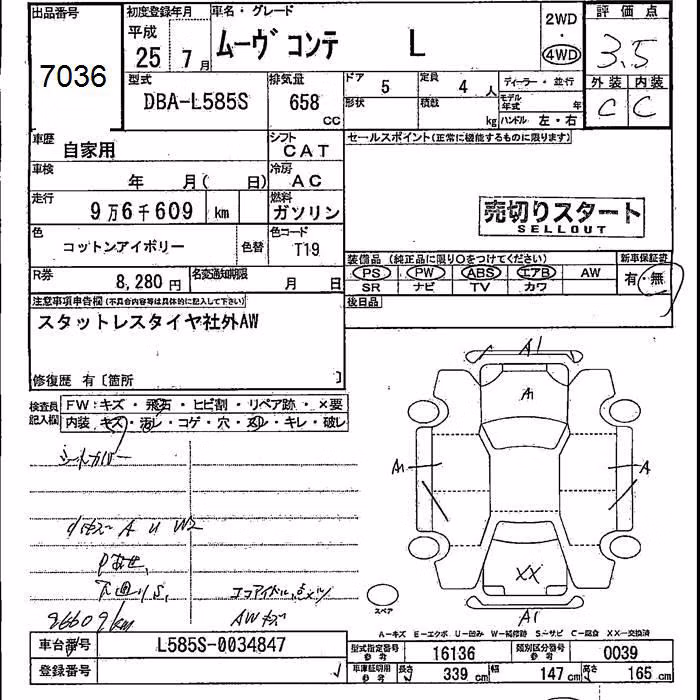 出品番号
7036
初度登録年月
平成
25年 7月
車名・グレード
ムーヴ コンテ L
2WD
・
4WD
評価点
3.5
外装 内装
C C
型式
DBA-L585S
排気量
658
CC
ドア
5
形状
定員
4人
積数
kg
ディーラー・並行
モデル年式 年
ハンドル 左・右
車歴
自家用
シフト
CAT
車検
年 月( 日)
冷房
AC
走行
9万6千609 km
燃料
ガソリン
色
コットンアイボリー
色替
色コード
T19
R券
8,280 円
名変通知期限
月 日
セールスポイント(正常に機能するものに限ります)
売切りスタート
SELLOUT
装備品(純正品に限り○をつけてください)
PS PW ABS エアB AW
SR ナビ TV カワ
新車保証書
有・無
後日品
注意事項申告欄(不具合内容等は具体的に記入して下さい)
スタットレスタイヤ社外AW
修復歴 有〔箇所 〕
検査員記入欄
FW:キズ・飛石・ヒビ割・リペア跡・×要
内装 キズ・汚レ・コゲ・穴・凹・キレ・破レ
シートカバー
A U W2
下廻りS,
AWキズ
96609km
A1
A1
A1
A
XX
A1
スペア
A-キズ E-エクボ U-凹み W-補修跡 S-サビ C-腐食 XX-交換済
車台番号
L585S-0034847
登録番号
型式指定番号
参考
16136
類別区分番号
参考
0039
車庫証明用
参考
長さ 339 cm
幅 147 cm
高さ 165 cm